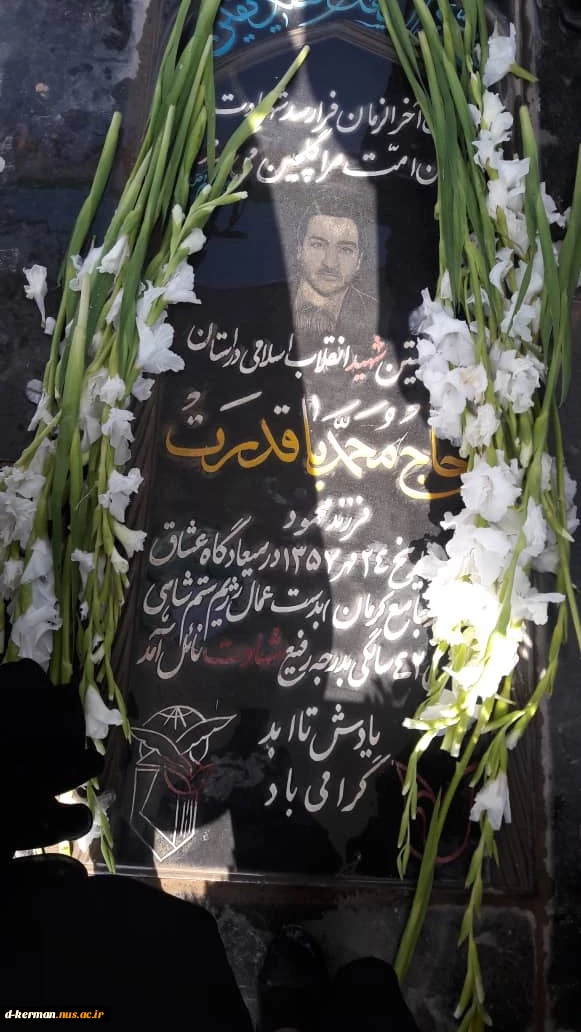 آخر از زمان فرا رسد شهادت
امّت مرا گلچین می
شهید انقلاب اسلامی در استان
حاج محمّد باقدرت
فرزند محمود
۲۴ مهر ۱۳۵۷ در میعادگاه عشاق
جامع کرمان بدست عمال رژیم ستم شاهی
سالگی بدرجه رفیع شهادت نائل آمد
یادش تا ابد
گرامی باد
d-kerman.nus.ac.ir